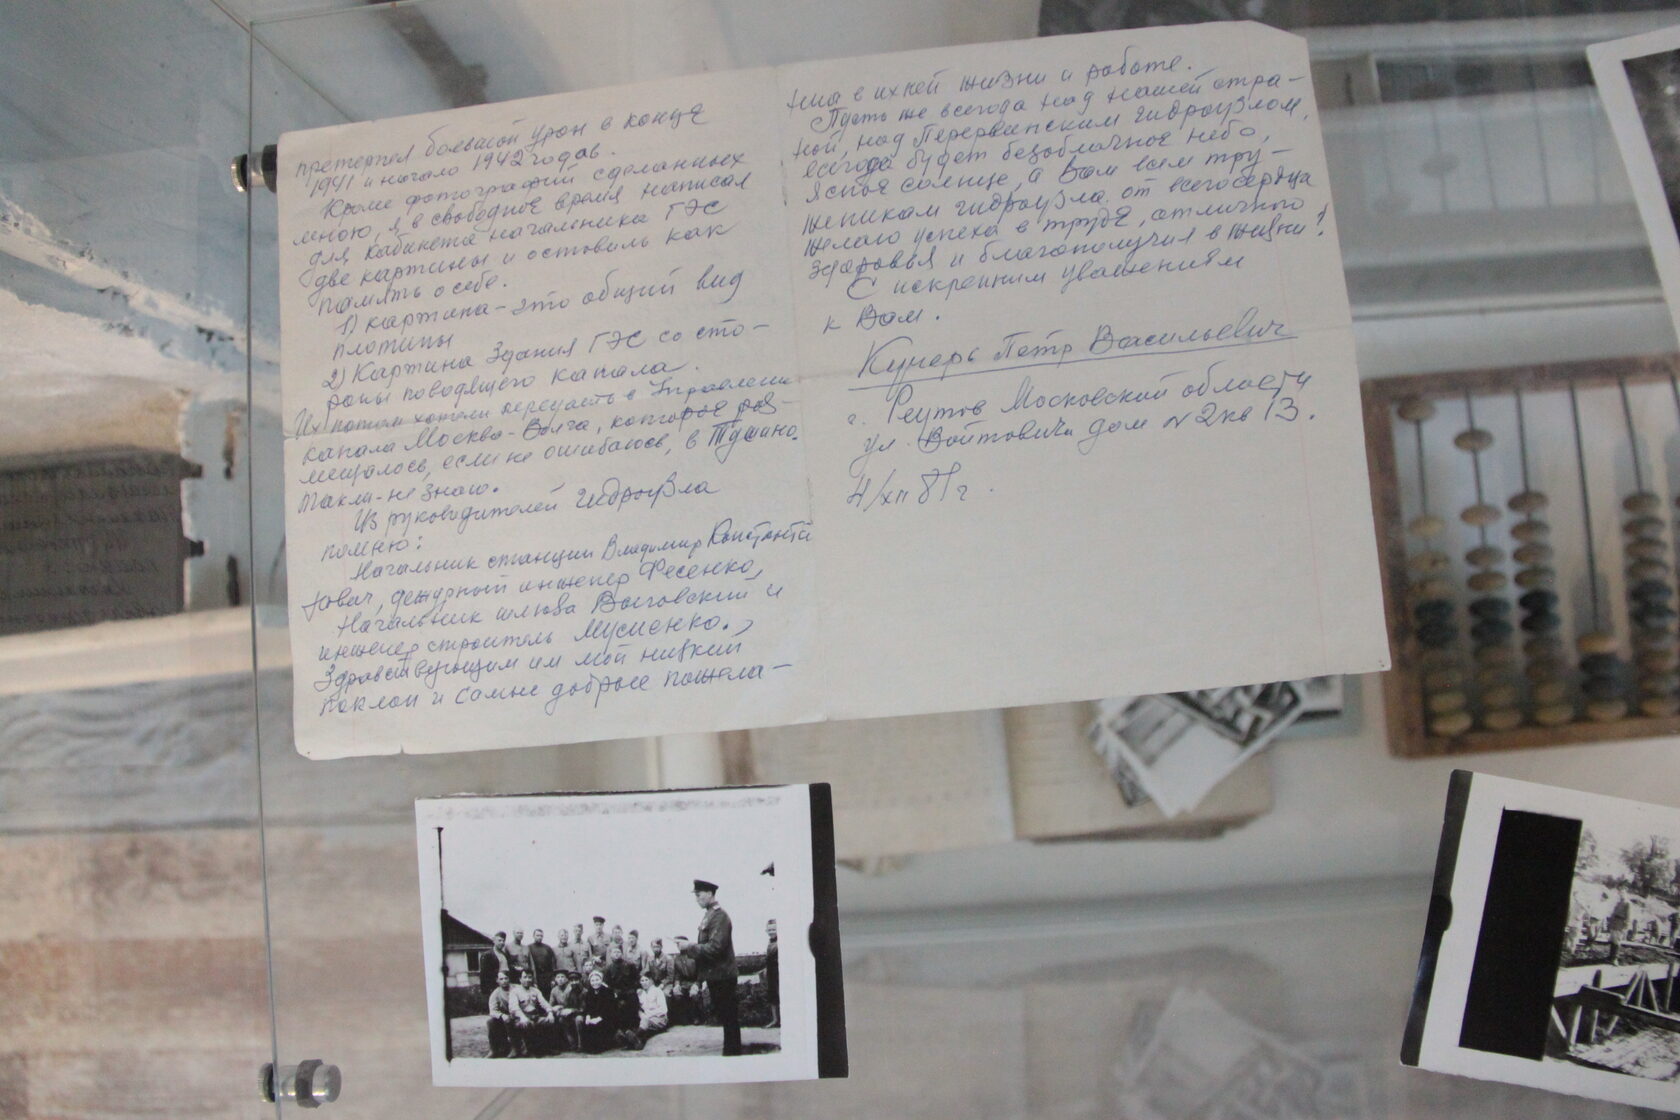 претерпел большой урон в конце
1941 и начало 1942 годов.
Кроме фотографий сделанных
мною, я в свободное время написал
для кабинета начальника ГЭС
две картины и оставил как
память о себе.
1) картина - это общий вид
плотины
2) Картина Здания ГЭС со сто-
роны поводящего канала.
Их потом хотели передать в Управление
канала Москва-Волга, которое раз-
мещалось, если не ошибаюсь, в Тушино.
Так ли - не знаю.
Из руководителей гидроузла
помню:
Начальник станции Владимир Константи
нович, дежурный инженер Фесенко,
Начальник шлюза Выговский и
инженер строитель Мусиенко.
Здравствующим им мой низкий
поклон и самые добрые пожела-
ния в ихней жизни и работе.
Пусть же всегда над нашей стра-
ной, над Перервинским гидроузлом,
всегда будет безоблачное небо,
ясное солнце, а Вам всем тру-
женикам гидроузла от всего сердца
желаю успеха в труде, отличного
здоровья и благополучия в жизни!
С искренним уважением
к Вам.
Кучерь Пётр Васильевич
г. Реутов Московский области
ул. Войтовича дом № 2 кв 13.
4/XII 81 г.